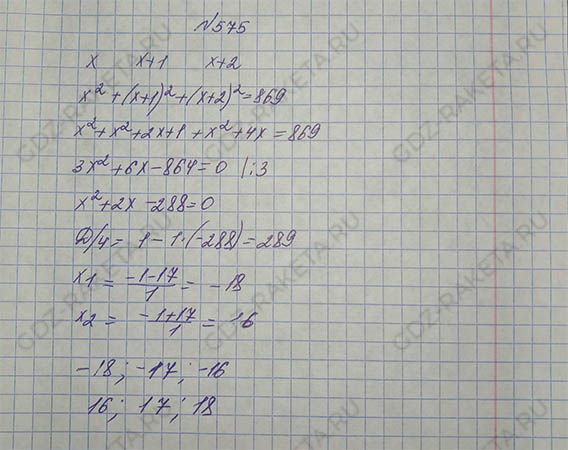 №575
x x+1 x+2
x²+(x+1)²+(x+2)²=869
x²+x²+2x+1+x²+4x=869
3x²+6x-864=0 |:3
x²+2x-288=0
D/4= 1-1·(-288)=289
x1 = -1-17/1 = -18
x2 = -1+17/1 = 16
-18; -17; -16
16; 17; 18
GDZ-RAKETA.RU